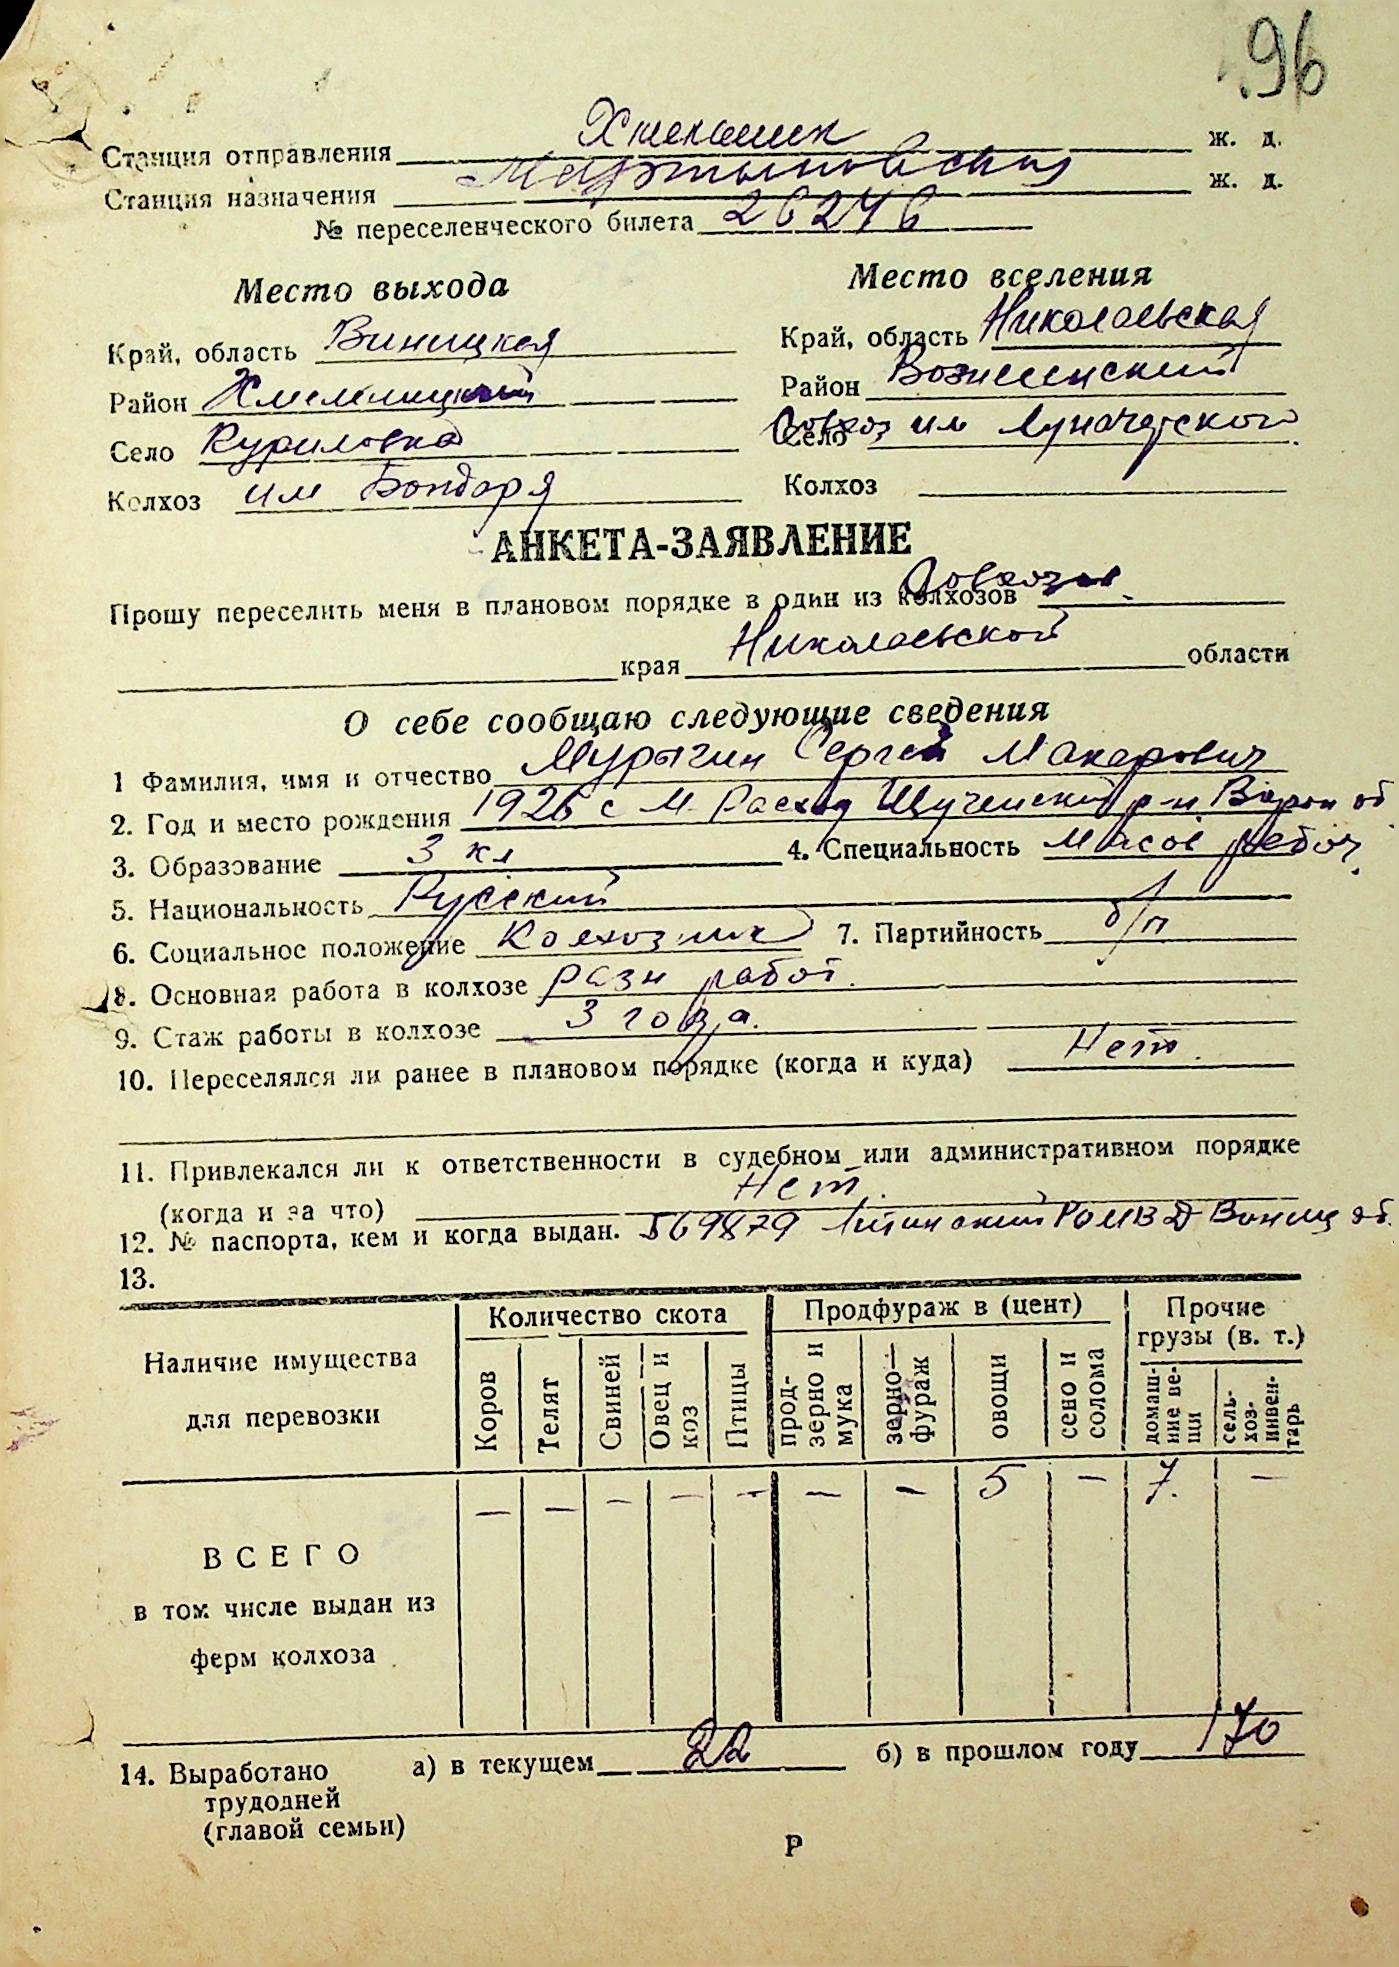 96
Станция отправления Хмельник ж. д.
Станция назначения Мартыновская ж. д.
№ переселенческого билета 26246
Место выхода
Место вселения
Край, область Виницкая
Край, область Николаевская
Район Хмельницкий
Район Вознесенский
Село Куриловка
Село Совхоз им Луначарского
Колхоз им Бондаря
Колхоз
АНКЕТА-ЗАЯВЛЕНИЕ
Прошу переселить меня в плановом порядке в один из колхозов Совхозов
края Николаевской области
О себе сообщаю следующие сведения
1 Фамилия, имя и отчество Мурыгин Сергей Макарович
2. Год и место рождения 1926 с М. Щученский р-н. Ворон об
3. Образование 3 кл 4. Специальность Масов рабоч.
5. Национальность Русский
6. Социальное положение Колхозник 7. Партийность б/п
8. Основная работа в колхозе разн работ.
9. Стаж работы в колхозе 3 года.
10. Переселялся ли ранее в плановом порядке (когда и куда) Нет.
11. Привлекался ли к ответственности в судебном или административном порядке
(когда и за что) Нет.
12. № паспорта, кем и когда выдан. 569879 Литинский РОМВД Виниц об.
13.
Наличие имущества для перевозки
Количество скота
Продфураж в (цент)
Прочие грузы (в. т.)
Коров
Телят
Свиней
Овец и коз
Птицы
прод-зерно и мука
зерно—фураж
овощи
сено и солома
домаш-ние ве-щи
сель-хоз-инвен-тарь
— — — — — — — 5 — 7. —
ВСЕГО
в том числе выдан из
ферм колхоза
14. Выработано а) в текущем 22 б) в прошлом году 170
трудодней
(главой семьи)
Р